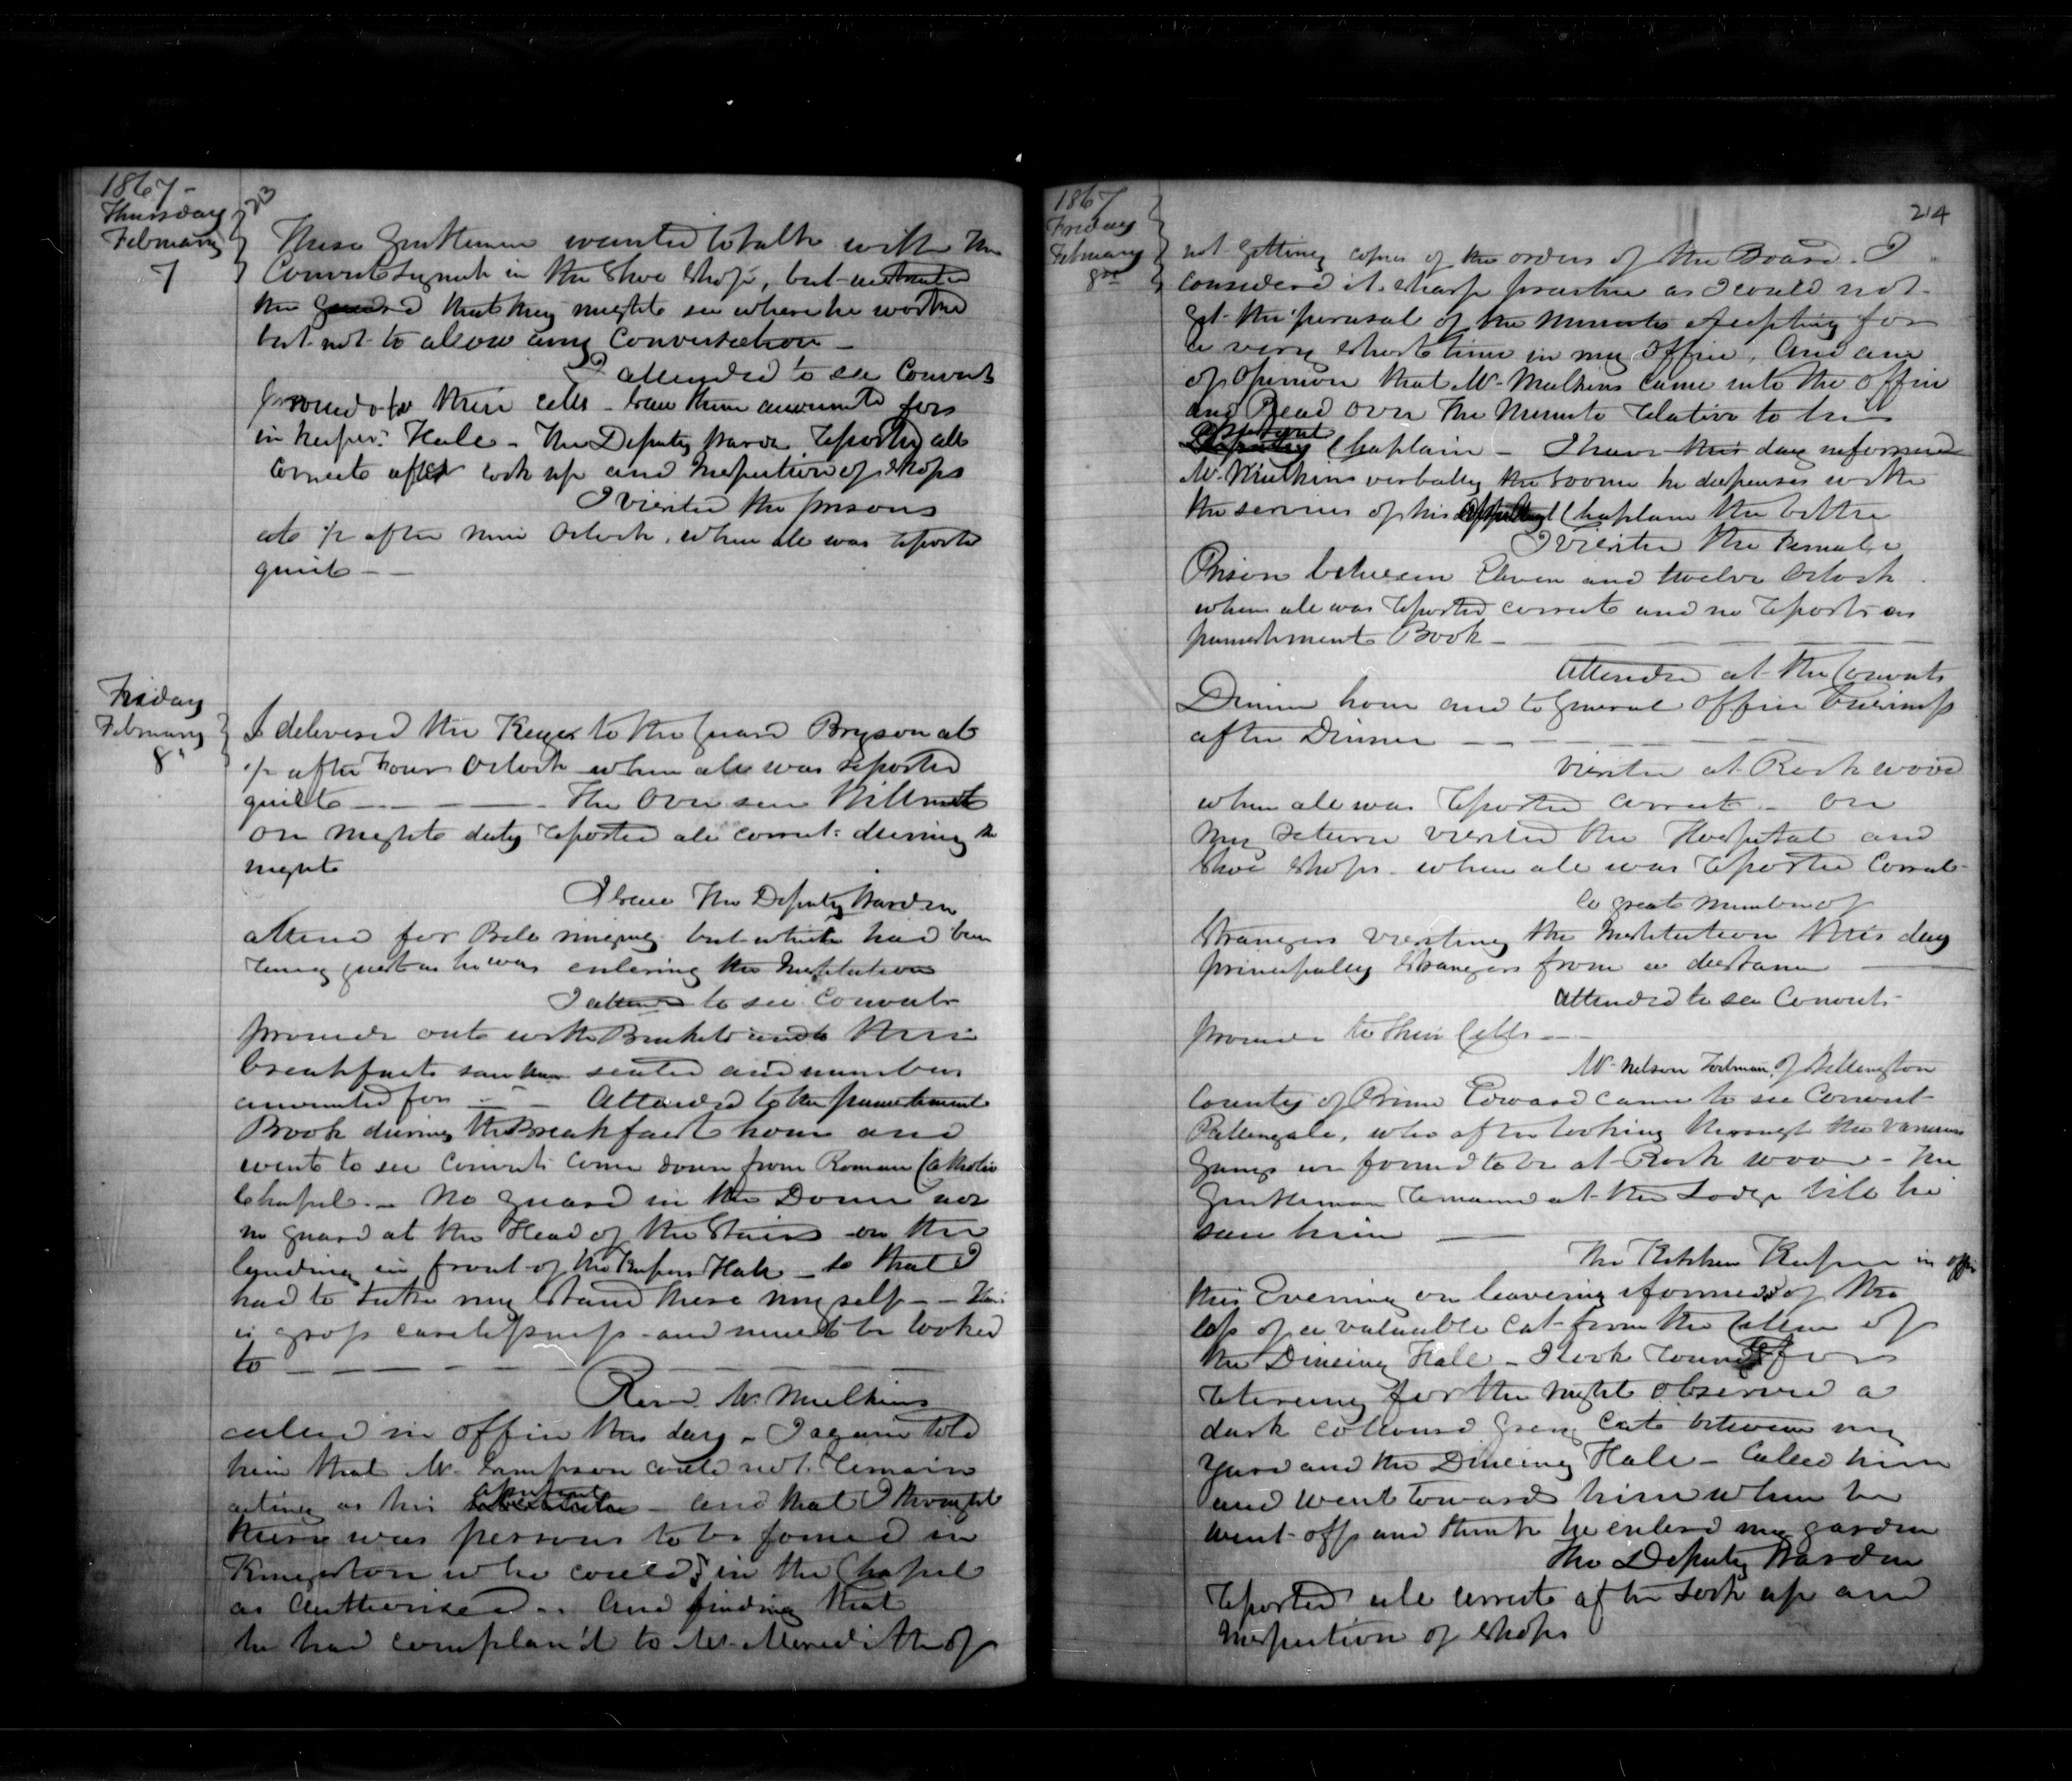 1867-
Thursday
February
7
213
These Gentlemen wanted to talk with the
Convict in the Shoe Shop, but instructed
the guard that they might see where he worked
but not to allow any Conversation -
I attended to see Convicts
proceed to their cells - saw them accounted for
in Keepers Hall - The Deputy Warden reported all
correct after lock up and Inspection of Shops
I visited the prisons
at ½ after nine Oclock, when all was reported
quiet - -
Friday
February
8
I delivered the Keys to the guard Bryson at
½ after Four Oclock when all was reported
quiet - - - - The Overseer
on night duty reported all correct during the
night
I saw The Deputy Warden
attend for Bell ringing but which had been
rung just as he was entering the Institution
I attend to see Convicts
proceed out with Buckets and to their
breakfast saw them seated and numbers
accounted for - - Attended to the punishment
Book during the Breakfast hour and
went to see convicts come down from Roman Catholic
Chapel - No guard in the Dome nor
no guard at the Head of the Stairs on the
landing in front of the Keepers Hall - so that I
had to take my stand there myself - - This
is gross carelessness - and must be looked
to - - - - - -
Revd. Mr. Mulkins
called in office this day - I again told
him that Mr. Sampson could not remain
acting as his - and that I thought
there was persons to be found in
Kingston who could in the Chapel
as Authorised - And finding that
he had complan'd to Mr. Meredith of
1867
Friday
February
8
214
not getting copies of the orders of the Board. I
considered it sharp practice as I could not
get the perusal of the Minutes excepting for
a very short time in my office, And am
of opinion that Mr. Mulkins came into the office
and Read over the Minute relative to his
Chaplain - I have this day informed
Mr. Mulkins verbally the sooner he dispenses with
the services of his Chaplain the better
I visited the Female
Prison between Eleven and twelve Oclock
when all was reported correct and no reports on
punishment Book - - - -
Attended at the Convicts
Dinner hour and to General office business
after Dinner - - - -
Visited at Rockwood
when all was reported correct - On
my return visited the Hospital and
Shoe Shops - when all was reported correct -
A great number of
Strangers visiting the Institution this day
principally Strangers from a distance -
Attended to see Convicts
proceed to their Cells - -
Mr. Nelson of Wellington
County of Prince Edward came to see Convict
Pallengale, who after looking through the various
gangs was found to be at Rockwood - The
Gentleman remained at the Lodge till he
saw him -
The Kitchen Keeper in office
this Evening on leaving informed of the
loss of a valuable cat from the Cellar of
the Dineing Hall - I look round
retireing for the night observed a
dark coloured grey Cat between my
yard and the Dineing Hall - Called him
and went towards him when he
went off and think he entered my garden
The Deputy Warden
reported all correct after Lock up and
Inspection of Shops